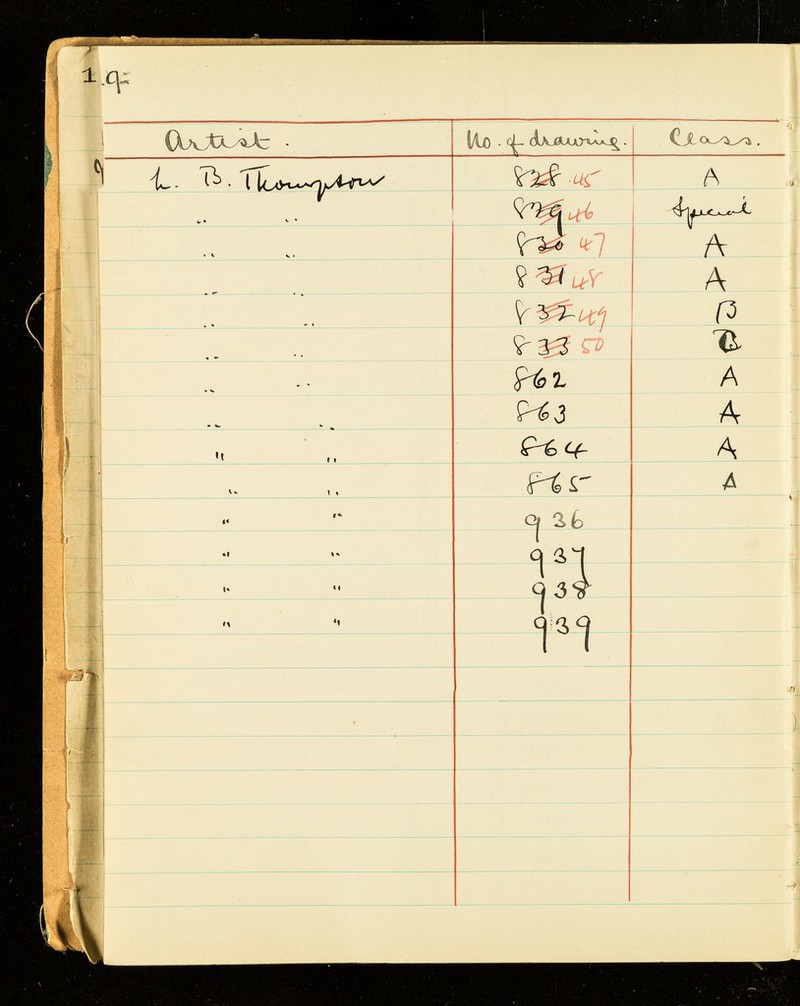 19
Artist. No. of drawing. Class.
h. B. Thompson 828 45 A
" " 829 46 Special
" " 830 47 A
" " 831 48 A
" " 832 49 B
" " 833 50 B
" " 862 A
" " 863 A
" " 864 A
" " 865 A
" " 936
" " 937
" " 938
" " 939